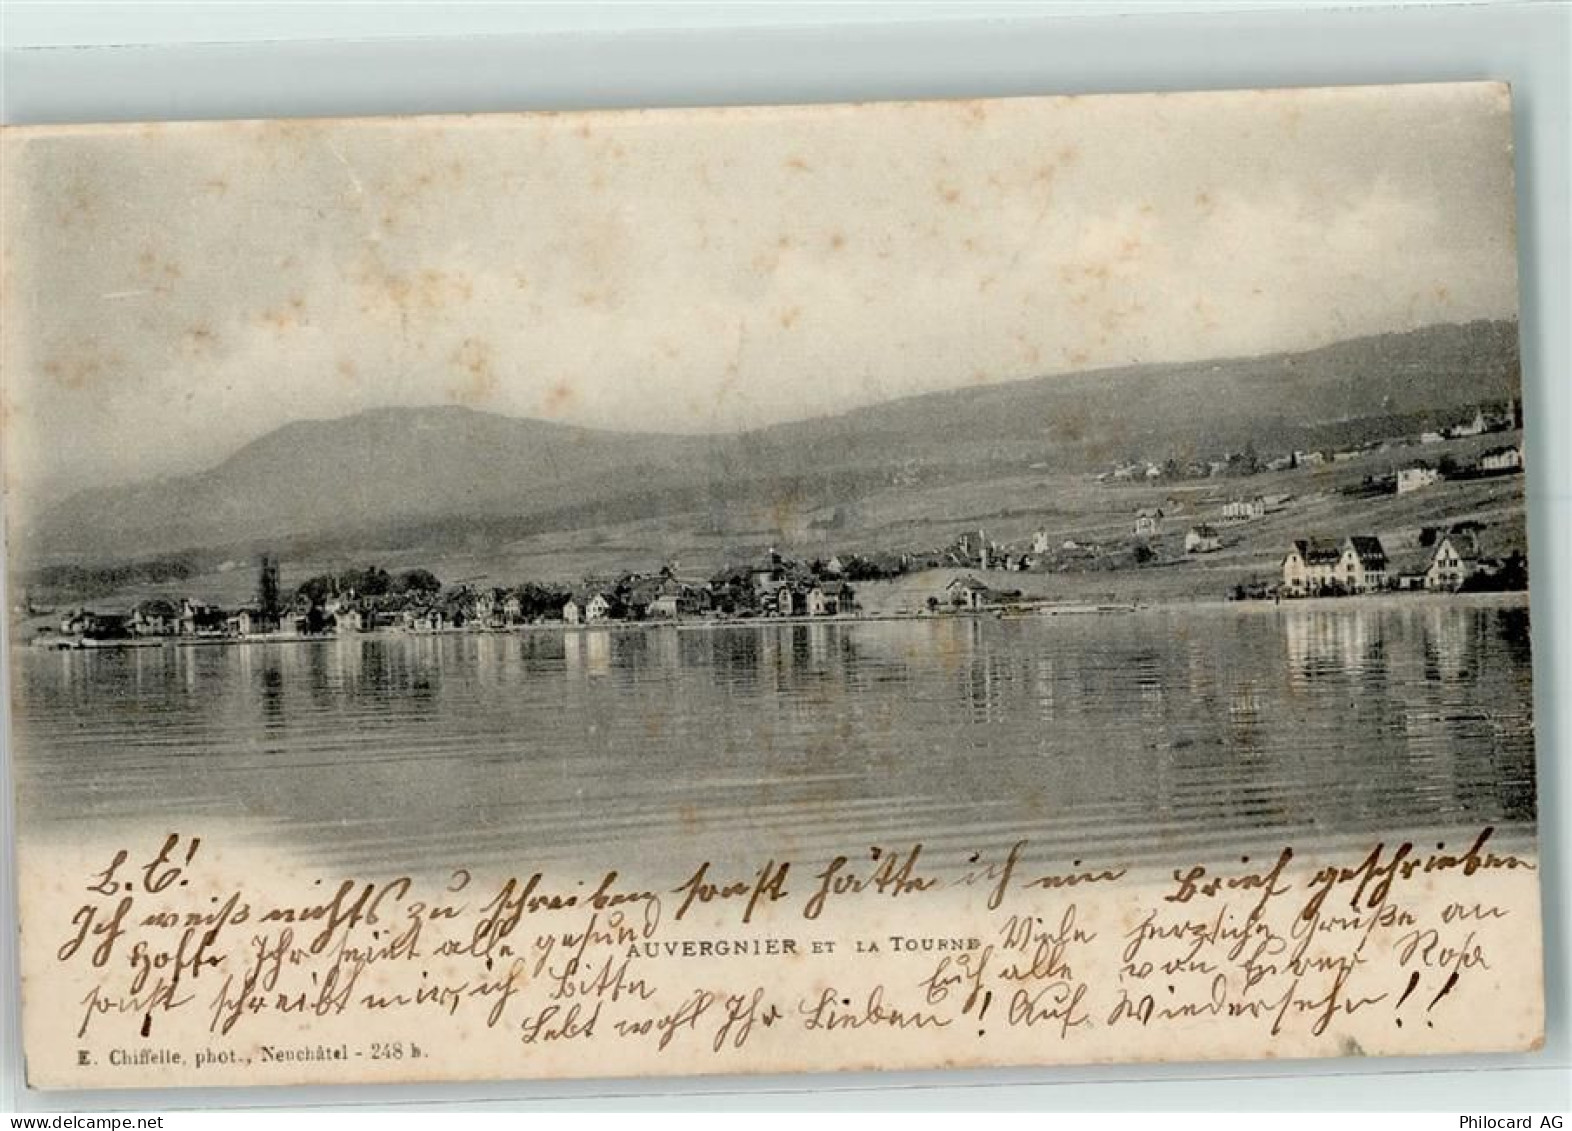 L. E.!
Ich weiß nichts zu schreiben sonst hätte ich ein Brief geschrieben
Hoffe Ihr seiet alle gesund
sonst schreibt mir, ich bitte
AUVERGNIER ET LA TOURNE
Viele herzliche Grüße an
Euch alle von Eurer Rosa
Lebt wohl Ihr Lieben! Auf Wiedersehn!!
E. Chiffelle, phot., Neuchâtel - 248 b.
Philocard AG